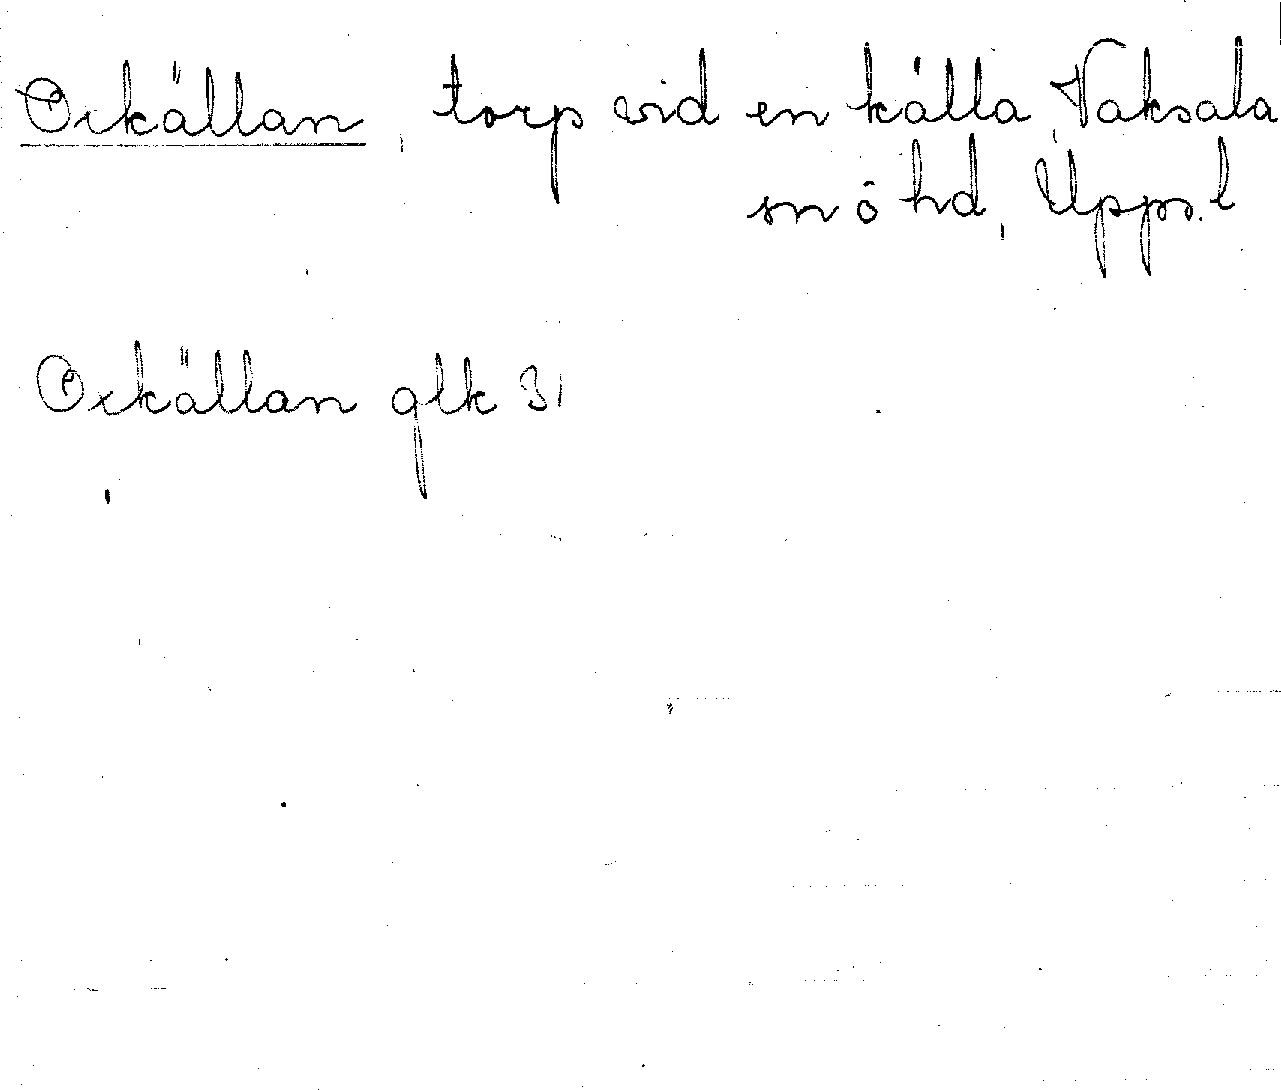 Orkällan, torp vid en källa, Vaksala
sn o hd, Upps. l
Orkällan glk 31